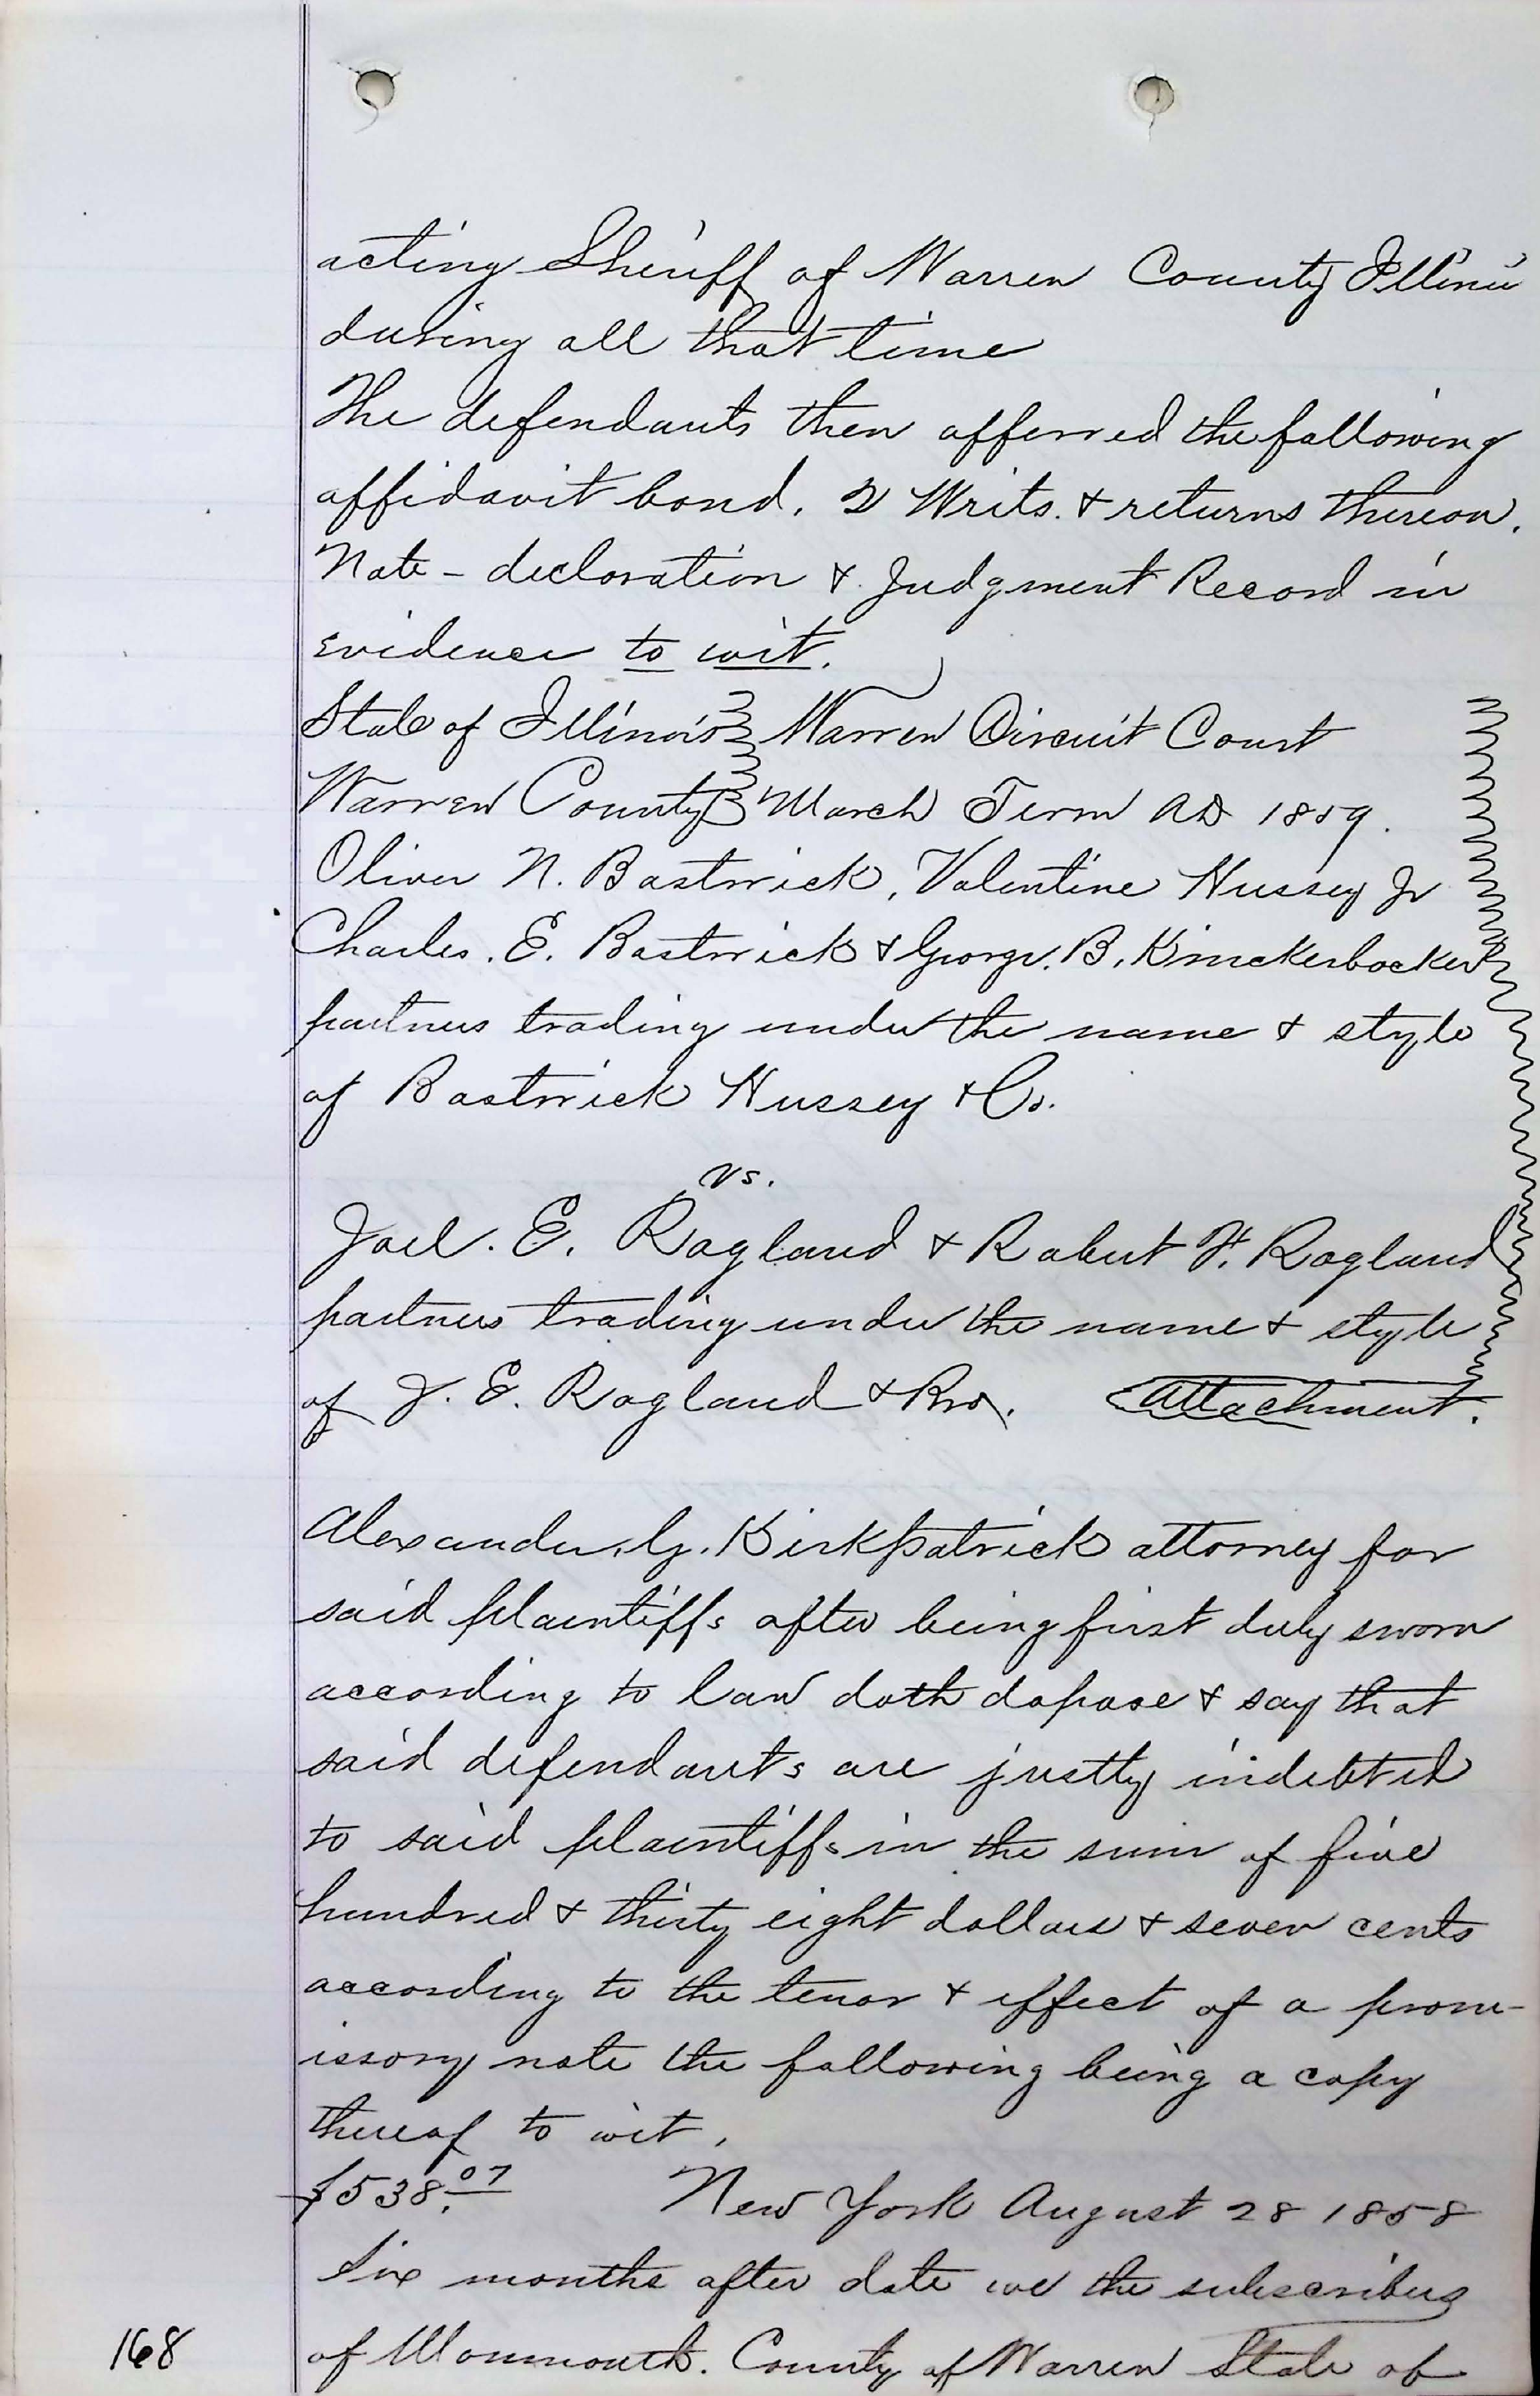 acting Sheriff of Warren County Illinois
during all that time
The defendants then offerred the following
affidavit bond. 2 Writs. & returns thereon.
Note - declaration & Judgment Record in
evidence to wit.
State of Illinois Warren Circuit Court
Warren County March Term AD 1859.
Oliver N. Bostwick, Valentine Hussey Jr
Charles. E. Bostwick & George. B. Knickerbocker
partners trading under the name & style
of Bostwick Hussey & Co.
vs.
Joel. E. Ragland & Robert F. Ragland
partners trading under the name & style
of J. E. Ragland & Bro. Attachment.
Alexander. G. Kirkpatrick attorney for
said plaintiffs after being first duly sworn
according to law doth depose & say that
said defendants are justly indebted
to said plaintiffs in the sum of five
hundred & thirty eight dollars & seven cents
according to the tenor & effect of a prom-
issory note the following being a copy
thereof to wit,
$538.07 New York August 28 1858
Six months after date we the subscribers
168 of Monmouth. County of Warren State of